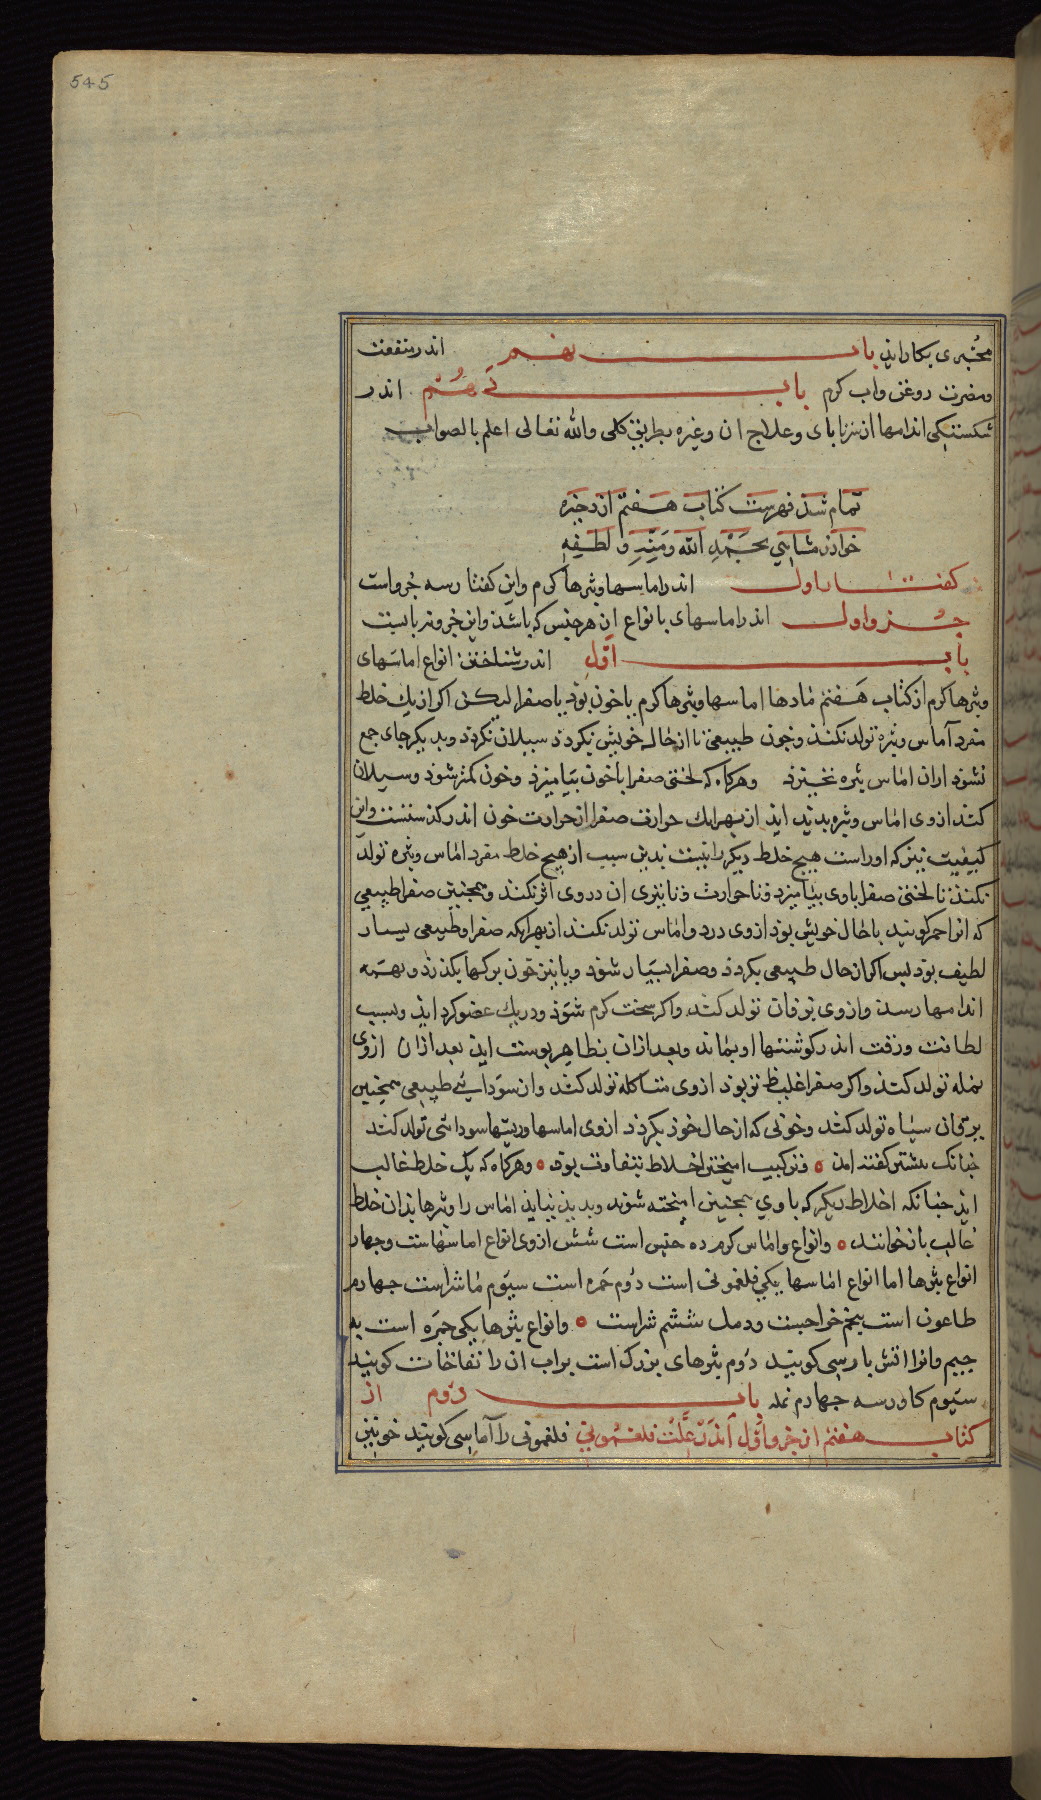 545
مجبری بکار اید بابــــــ نهم اندر منفعت
ومضرت روغن واب کرم بابــــــ دهم اندر
شکستکی اندامها از سر تا پای وعلاج ان وغیره بطریق کلی والله تعالی اعلم بالصواب
تمام شد فهرست کتاب هفتم از ذخیره
خوارزمشاهی بحمد الله ومنه ولطفه
کفتار اول اندر اماسها وبثرها کرم واین کفتار سه جزو است
جزو اول اندر اماسهای با انواع ان هر جنس که باشد واین جزو
بابــــــ اول اندر شناختن انواع اماسهای
وبثرها کرم از کتاب هفتم مادها اماسها وبثرها کرم یا خون بود یا صفرا لیکن اکر از یک خلط
مفرد آماس وبثره تولد نکند وخون طبیعی تا از حال خویش نکردد سیلان نکردد وبدیکر جای جمع
نشود از ان اماس بثره نخیزد وهرکاه که لختی صفرا با خون بیامیزد وخون کمتر شود وسیلان
کند از وی اماس وبثره بدید اید از بهر انک حرارت صفرا از حرارت خون اندر کذشتست واین
کیفیت تیز که اوراست هیچ خلط دیکر را نیست بدین سبب از هیچ خلط مفرد اماس وبثره تولد
نکند تا لختی صفرا با وی بیامیزد وتا حرارت وتا تیزی ان در وی اثر نکند وهمچنین صفرا طبیعی
که انرا احمر کویند با حال خویش بود از وی درد واماس تولد نکند از بهر انکه صفرا وطبیعی بسیار
لطیف بود پس اکر از حال طبیعی بکردد وصفرا بسیار شود وبا خون برکها بکذرد وبهمه
اندامها رسد واز وی یرقان تولد کند واکر سخت کرم شود ودر یک عضو کرد اید وبسبب
لطافت ورقت اندر کوشتها او بماند وبعد ازان بظاهر پوست اید بعد ازان ازوی
نمله تولد کند واکر صفرا غلیظ تر بود از وی متاکله تولد کند وان سودایی طبیعی همچنین
یرقان سیاه تولد کند وخونی که از حال خود بکردد از وی اماسها وریشها سودائی تولد کند
جنانک بیشتر کفته امد وترکیب امیختن اخلاط بتفاوت بود وهرکاه که یک خلط غالب
اید جنانکه اخلاط دیکر که با وی همچنین امیخته شوند وبدید نیاید اماس را وبثرها بدان خلط
غالب باز خوانند وانواع واماس کرم ده جنس است شش از وی انواع اماسهاست وجهار
انواع بثرها اما انواع اماسها یکی فلغمونی است دوم حمره است سیوم ماشراست جهارم
طاعون است پنجم خراجست ودمل ششم شراست وانواع بثرها یکی جمره است به
جیم وانرا اتش پارسی کویند دوم بثرهای بزرک است پر اب ان را نفاخات کویند
سیوم کاورسه جهارم نمله بابــــــ دوم از
کتابــــــ هفتم از جزو اول اندر علت فلغمونی فلغمونی را آماسی کویند خونین